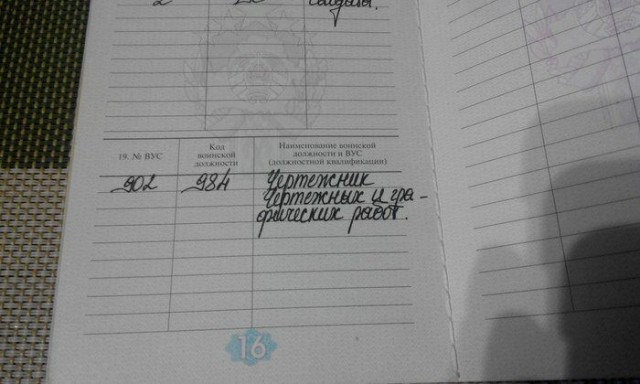 2
солдаты.
19. № ВУС
Код
воинской
должности
Наименование воинской
должности и ВУС
(должностной квалификации)
902 984 Чертежник
Чертежных и гра-
фических работ.
16